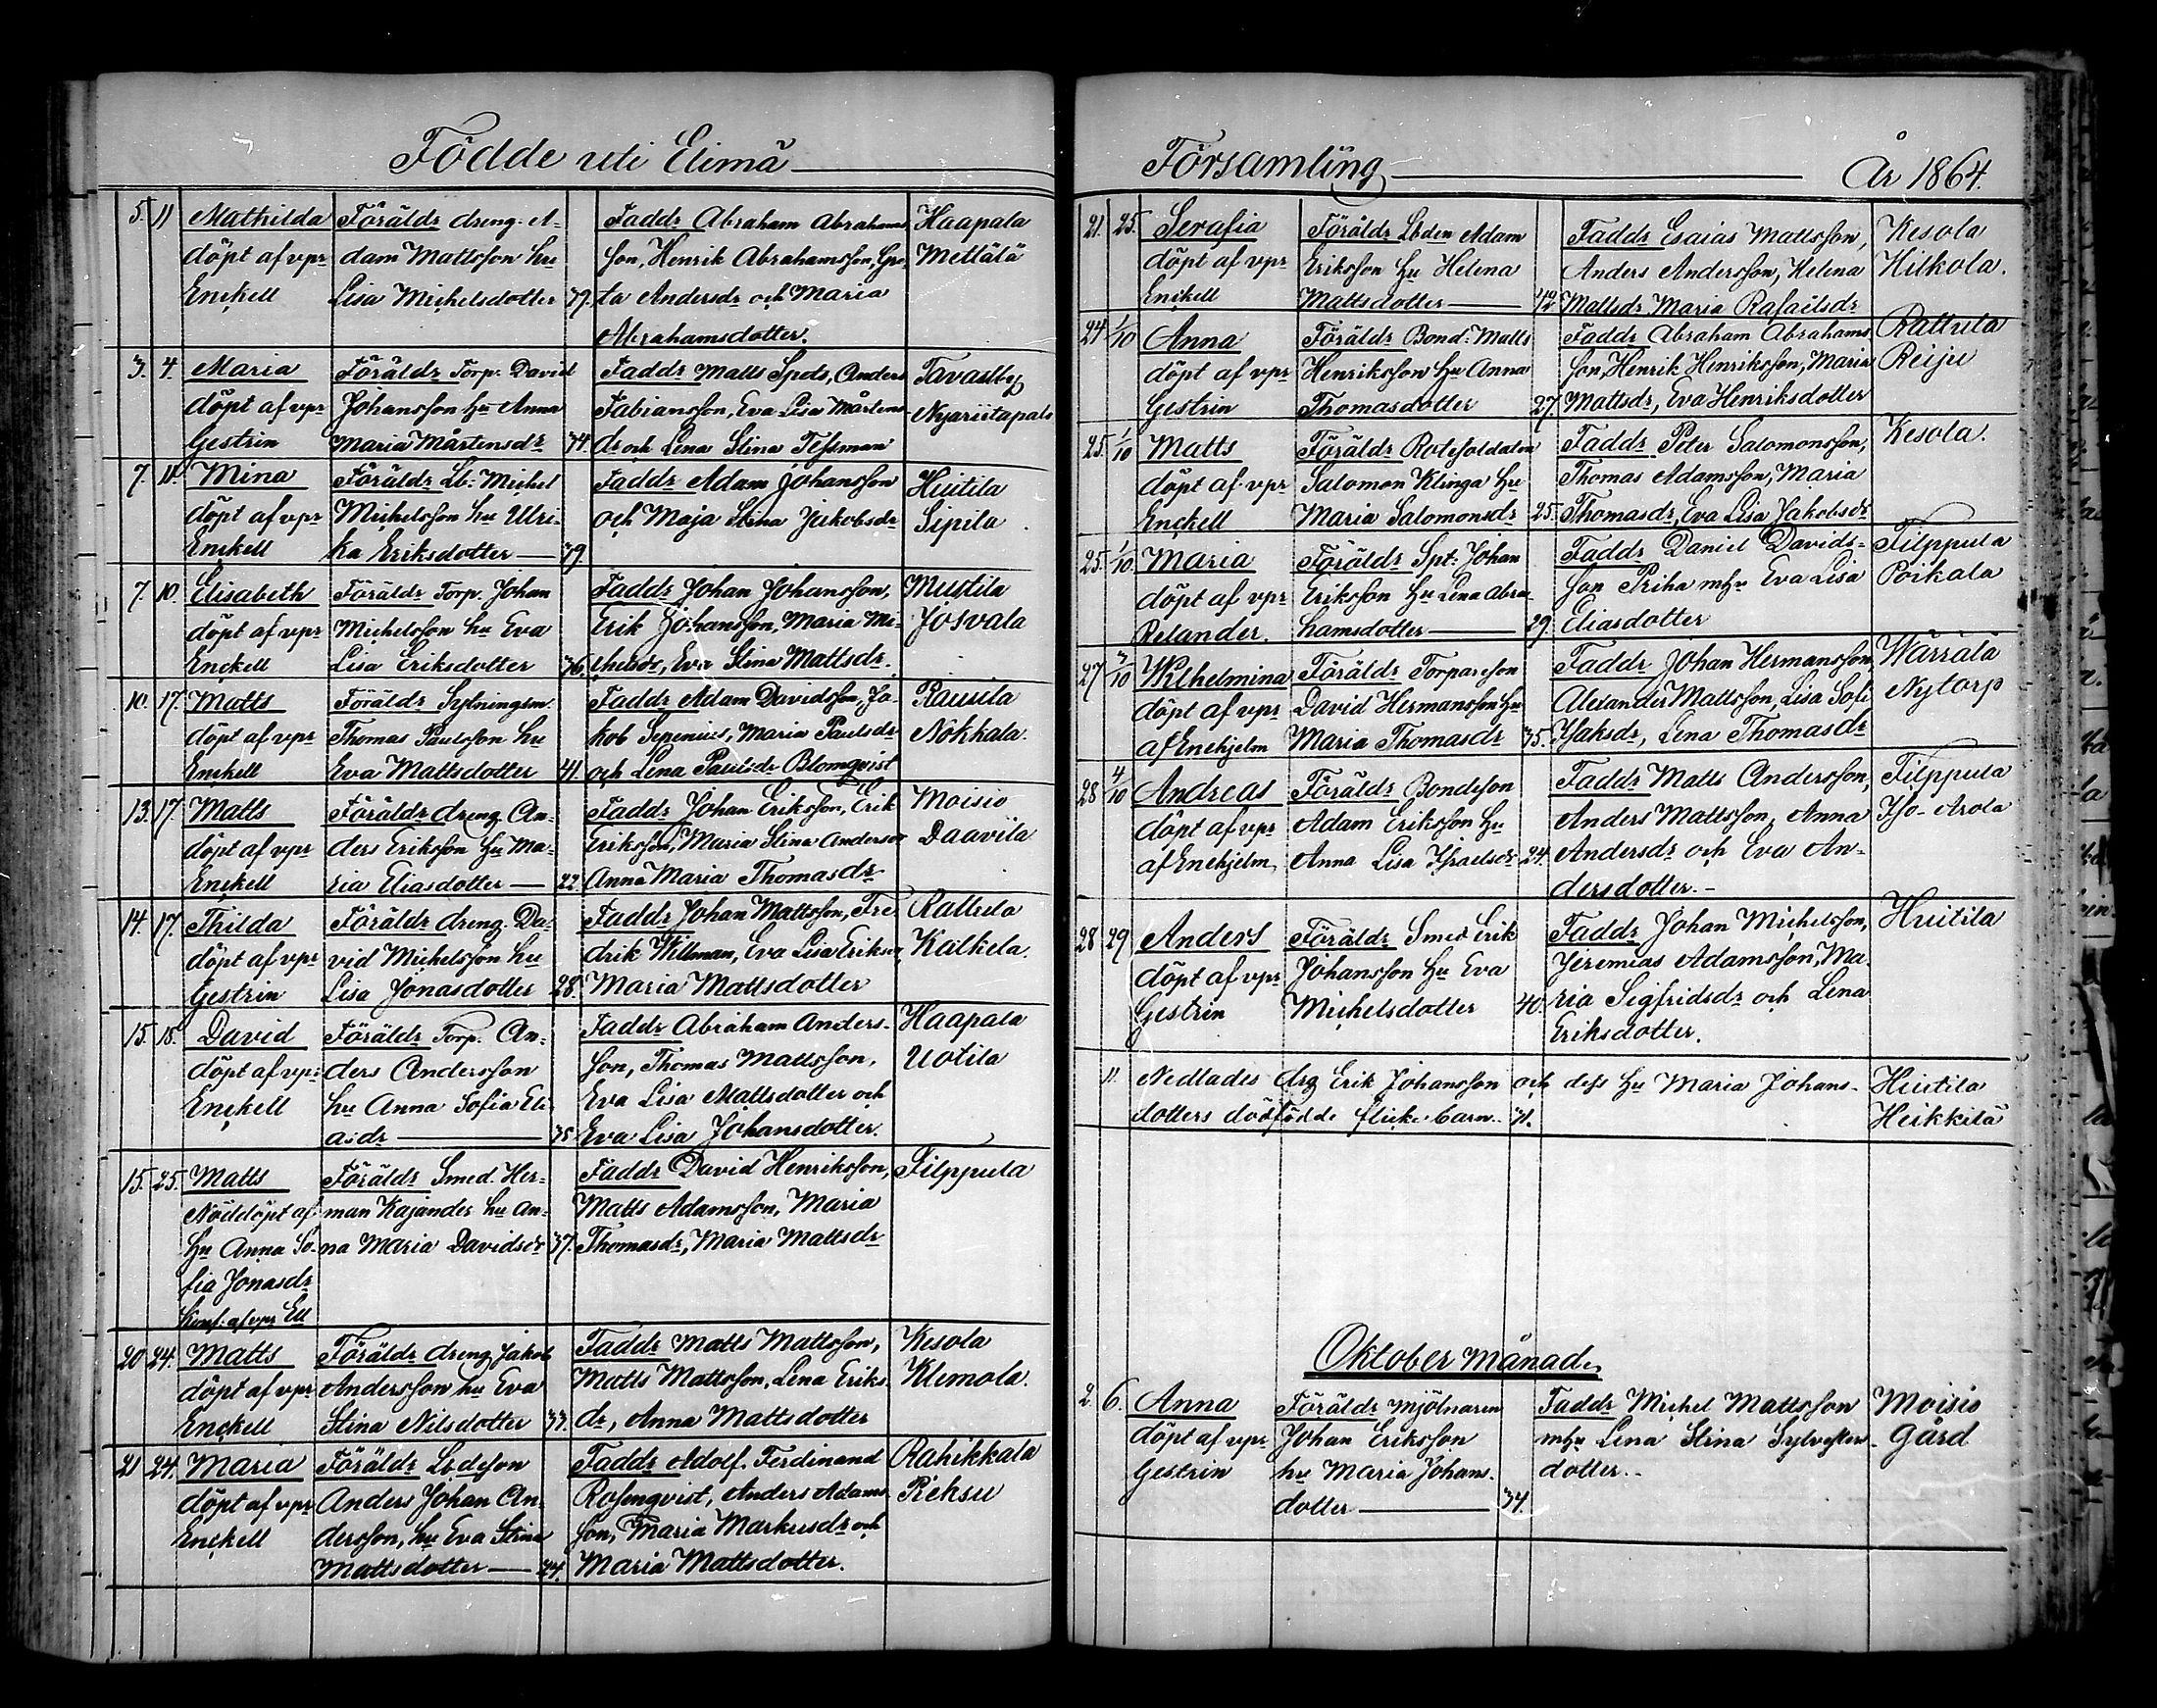 Födde uti Elimä
5. 11 Mathilda Föräldr dreng. A- Faddr Abraham Abrahams Haapala
döpt af vpr dam Mattsson hu son, Henrik Abrahamsson, Gre- Mettälä
Enckell Lisa Michelsdotter 39. ta Andersdr och Maria
Abrahamsdotter.
3. 4. Maria Föräldr Torp. David Faddr Matts Spets, Anders Tavastby
döpt af vpr Johansson hu Anna Fabiansson, Eva Lisa Mårtens- Nyariitapals
Gestrin Maria Mårtensdr 34. dr och Lena Stina Tessman
7. 11. Mina Föräldr Lb: Michel Faddr Adam Johansson Huitila
döpt af vpr Michelsson hu Ulri- och Maja Stina Jakobsdr Sipila
Enckell ka Eriksdotter 39.
7. 10. Elisabeth Föräldr Torp. Johan Faddr Johan Johansson, Mustila
döpt af vpr Michelsson hu Eva Erik Johansson, Maria Mi- Josvala
Enckell Lisa Eriksdotter 36. chelsdr, Eva Stina Mattsdr.
10. 17. Matts Föräldr Sytningsm. Faddr Adam Davidsson, Ja- Rausila
döpt af vpr Thomas Paulsson hu kob Sepenius, Maria Paulsdr Nokkala
Enckell Eva Mattsdotter 41. och Lena Paulsdr Blomqvist
13. 17. Matts Föräldr dreng. An- Faddr Johan Eriksson, Erik Moisio
döpt af vpr ders Eriksson hu Ma- Eriksson, Maria Stina Andersdr Daavila
Enckell ria Eliasdotter 22. Anna Maria Thomasdr
14. 17. Thilda Föräldr dreng. Da- Faddr Johan Mattsson, Fre- Rattula
döpt af vpr vid Michelsson hu drik Willman, Eva Lisa Eriksdr, Kalkela.
Gestrin Lisa Jonasdotter 28. Maria Mattsdotter
15. 18. David Föräldr Torp. An- Faddr Abraham Anders- Haapala
döpt af vpr ders Andersson son, Thomas Mattsson, Uotila
Enckell hu Anna Sofia Eli- Eva Lisa Mattsdotter och
asdr 35. Eva Lisa Johansdotter.
15. 25. Matts Föräldr Smed. Her- Faddr David Henriksson, Filppula
Nöddöpt af man Kajander hu An- Matts Adamsson, Maria
hu Anna So- na Maria Davidsdr 37. Thomasdr, Maria Mattsdr
fia Jonasdr
Konf. af vpr Ell
20 24. Matts Föräldr dreng Jakob Faddr Matts Mattsson, Kesola
döpt af vpr Andersson hu Eva Matts Mattsson, Lena Eriks- Klemola.
Enckell Stina Nilsdotter 33. dr, Anna Mattsdotter
21 24. Maria Föräldr Lbdeson Faddr Adolf Ferdinand Rahikkala
döpt af vpr Anders Johan An- Rosenqvist, Anders Adams- Reksu
Enckell dersson, hu Eva Stina son, Maria Markusdr och
Mattsdotter 24. Maria Mattsdotter.
Församling År 1864.
21. 25. Serafia Föräldr Lbden Adam Faddr Esaias Mattsson, Kesola
döpt af vpr Eriksson hu Helena Anders Andersson, Helena Kilkola.
Enckell Mattsdotter 42. Mattsdr Maria Rafaelsdr
24 1/10 Anna Föräldr Bond: Matts Faddr Abraham Abrahams Rattula
döpt af vpr Henriksson hu Anna son, Henrik Henriksson, Maria Reiju
Gestrin Thomasdotter 27. Mattsdr, Eva Henriksdotter
25. 1/10 Matts Föräldr Rotesoldaten Faddr Peter Salomonsson, Kesola.
döpt af vpr Salomon Klinga hu Thomas Adamsson, Maria
Enckell Maria Salomonsdr 25. Thomasdr, Eva Lisa Jakobsdr
25. 1/10. Maria Föräldr Spt: Johan Faddr Daniel Davids- Filppula
döpt af vpr Eriksson hu Lena Abra- son Priha mhu Eva Lisa Poikala
Relander. hamsdotter 29. Eliasdotter
27 3/10 Wilhelmina Föräldr Torpareson Faddr Johan Hermansson Wärrälä
döpt af vpr David Hermansson hu Alexander Mattsson, Lisa Sofi Nytorp
af Enehjelm Maria Thomasdr 35. Isaksdr, Lena Thomasdr
28 4/10 Andreas Föräldr Bondeson Faddr Matts Andersson, Filppula
döpt af vpr Adam Eriksson hu Anders Mattsson, Anna Iso-Arola
af Enehjelm Anna Lisa Israelsdr 24. Andersdr och Eva An-
dersdotter.
28 29 Anders Föräldr Smed Erik Faddr Johan Michelsson, Huitila
döpt af vpr Johansson hu Eva Jeremias Adamsson, Ma-
Gestrin Michelsdotter 40. ria Sigfridsdr och Lena
Eriksdotter.
11. Nedlades drg Erik Johansson och dess hu Maria Johans- Huitila
dotters dödfödde flicke barn. 31. Heikkilä
Oktober månad.
2. 6. Anna Föräldr Mjölnaren Faddr Michel Mattsson Moisio
döpt af vpr Johan Eriksson mhu Lena Stina Sylvesters- Gård
Gestrin hu Maria Johans- dotter.
dotter 34.